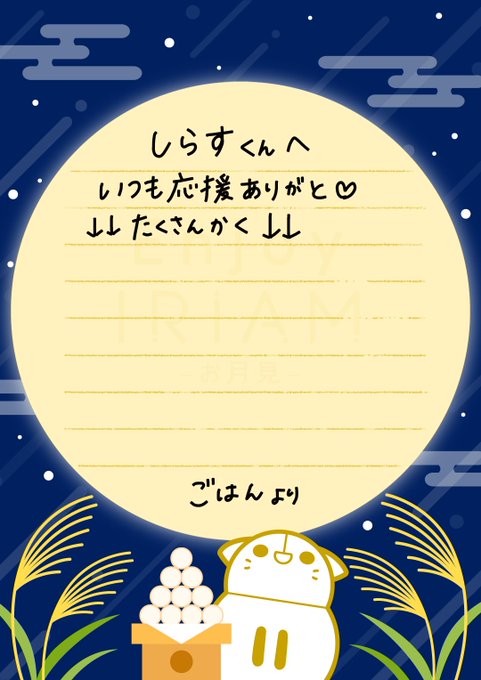 しらすくんへ
いつも応援ありがと♡
↓↓たくさんかく↓↓
Enjoy
IRIAM
-お月見-
ごはんより